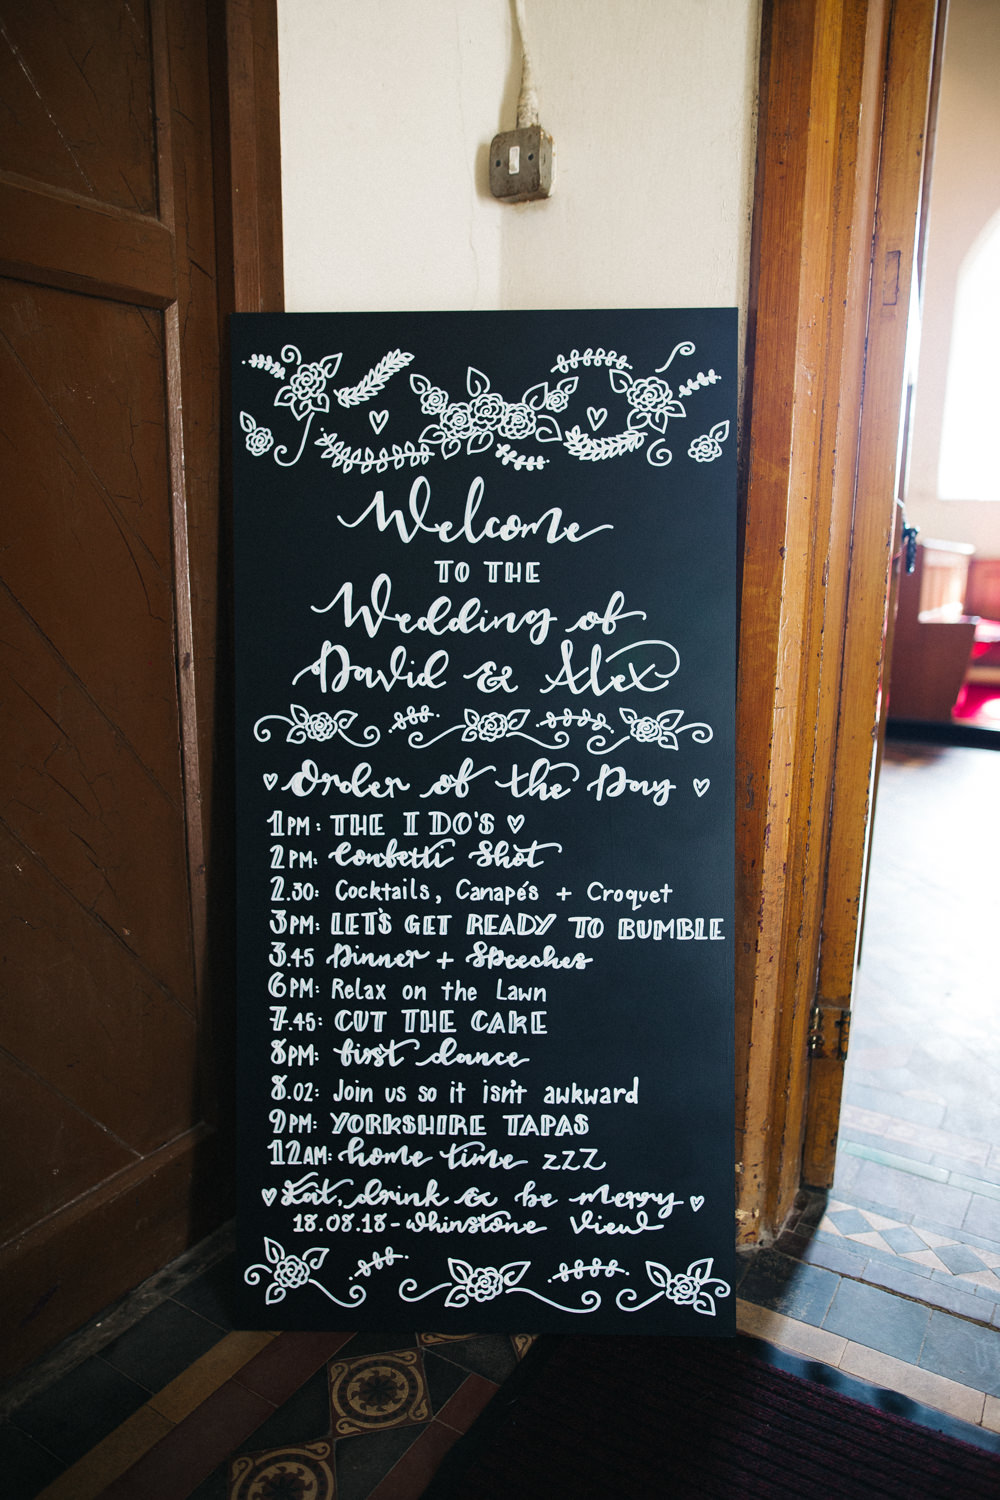 Welcome
TO THE
Wedding of
David & Alex
Order of the Day
1PM: THE I DO'S
2PM: Confetti Shot
2.30: Cocktails, Canapés + Croquet
3PM: LET'S GET READY TO BUMBLE
3.45 Dinner + Speeches
6PM: Relax on the Lawn
7.45: CUT THE CAKE
8PM: first dance
8.02: Join us so it isn't awkward
9PM: YORKSHIRE TAPAS
12AM: home time zzz
Eat, drink & be merry
18.08.18 - Whinstone View